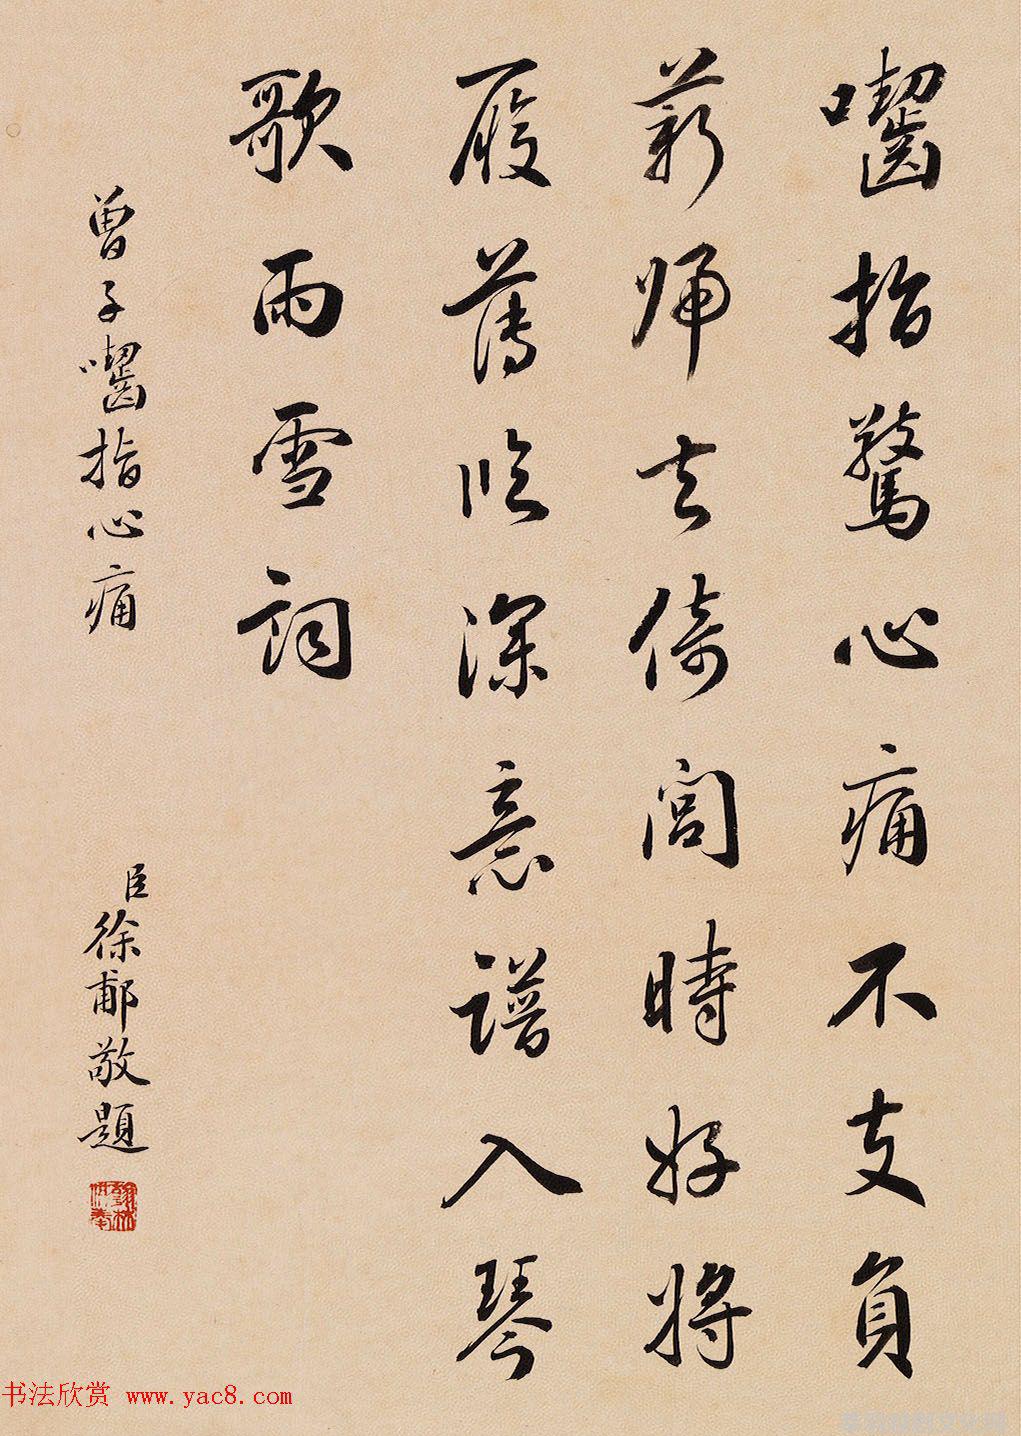 囓指驚心痛不支負
薪歸去倚閭時好將
履薄臨深意譜入琴
歌雨雪詞
曾子囓指心痛
臣徐郙敬題
翰林供奉
书法欣赏 www.yac8.com